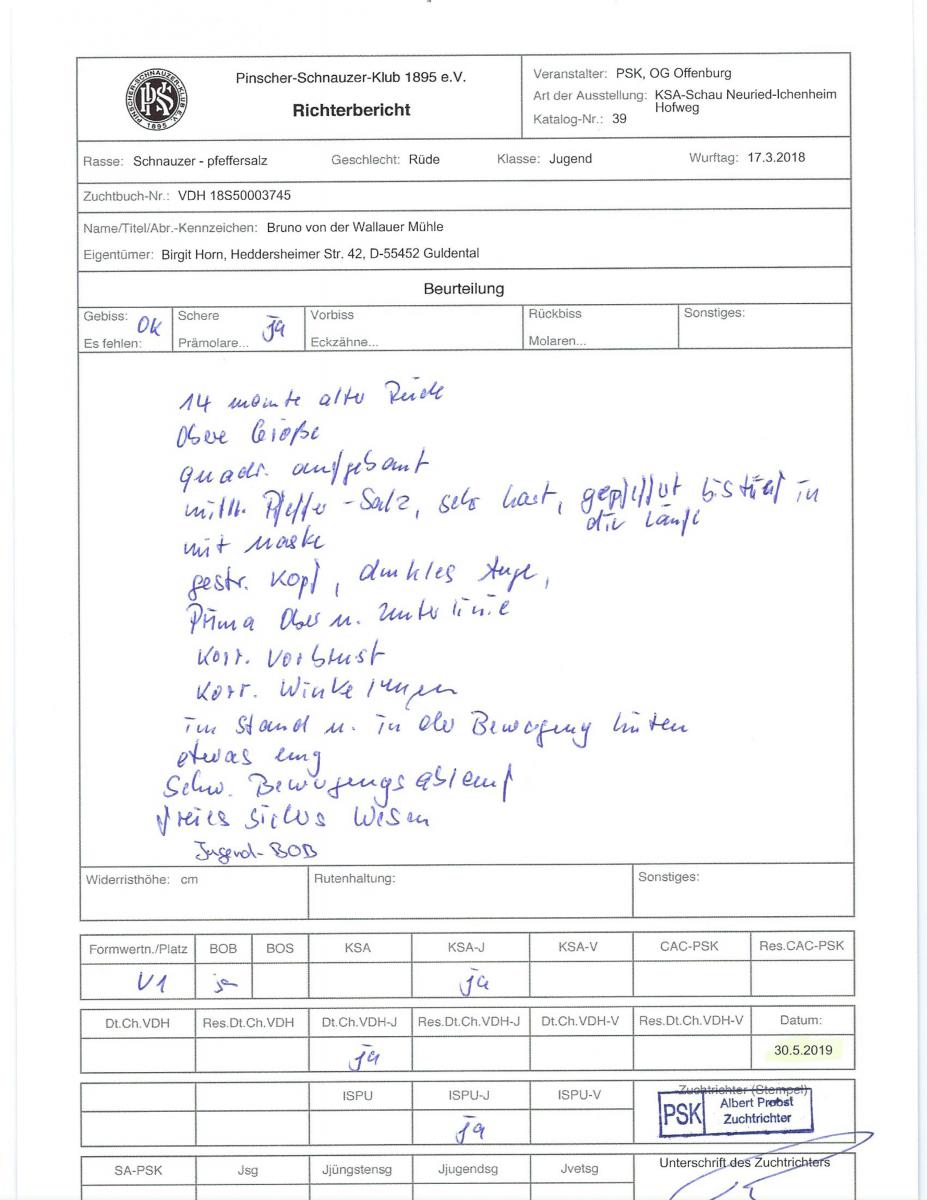 PINSCHER-SCHNAUZER-KLUB E.V.
PSK
1895
Pinscher-Schnauzer-Klub 1895 e.V.
Richterbericht
Veranstalter: PSK, OG Offenburg
Art der Ausstellung: KSA-Schau Neuried-Ichenheim
Hofweg
Katalog-Nr.: 39
Rasse: Schnauzer - pfeffersalz Geschlecht: Rüde Klasse: Jugend Wurftag: 17.3.2018
Zuchtbuch-Nr.: VDH 18S50003745
Name/Titel/Abr.-Kennzeichen: Bruno von der Wallauer Mühle
Eigentümer: Birgit Horn, Heddersheimer Str. 42, D-55452 Guldental
Beurteilung
Gebiss: OK Schere ja Vorbiss Rückbiss Sonstiges:
Es fehlen: Prämolare... Eckzähne... Molaren...
14 monte alter Rüde
Obere Größe
quadr. aufgebaut
mittl. Pfeffer-Salz, sehr hart, gepfeffert bis tief in
die Läufe
mit Maske
gestr. Kopf, dunkles Auge,
Prima Ober u. Unterlinie
Korr. Vorbrust
Korr. Winkelungen
im Stand u. in der Bewegung hinten
etwas eng
Schw. Bewegungsablauf
freies sichres Wesen
Jugend-BOB
Widerristhöhe: cm Rutenhaltung: Sonstiges:
Formwertn./Platz BOB BOS KSA KSA-J KSA-V CAC-PSK Res.CAC-PSK
V1 ja ja
Dt.Ch.VDH Res.Dt.Ch.VDH Dt.Ch.VDH-J Res.Dt.Ch.VDH-J Dt.Ch.VDH-V Res.Dt.Ch.VDH-V Datum:
ja 30.5.2019
ISPU ISPU-J ISPU-V Zuchtrichter (Stempel)
ja
PSK Albert Probst
Zuchtrichter
SA-PSK Jsg Jjüngstensg Jjugendsg Jvetsg Unterschrift des Zuchtrichters